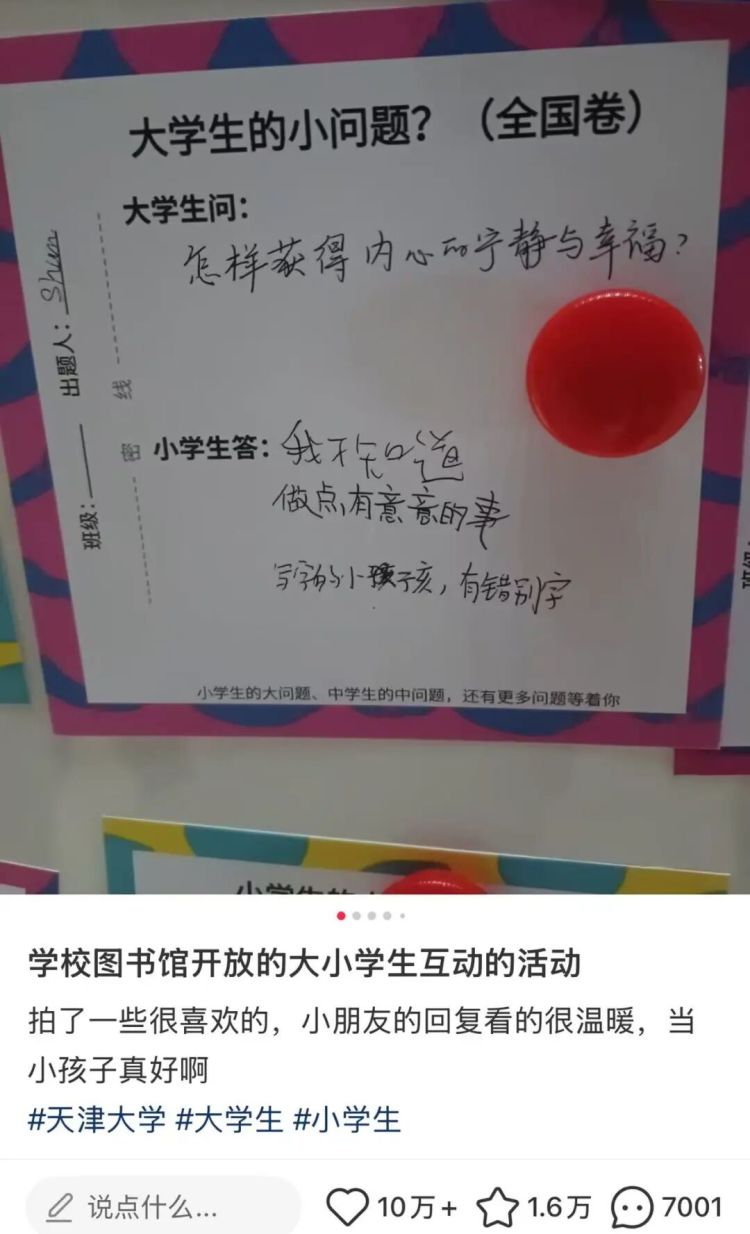 大学生的小问题？（全国卷）
大学生问：
怎样获得内心的宁静与幸福？
出题人：Shum
线
密
班级：
小学生答：我不知道
做点有意意的事
写字的小孩子亥，有错别字
小学生的大问题、中学生的中问题，还有更多问题等着你
学校图书馆开放的大小学生互动的活动
拍了一些很喜欢的，小朋友的回复看的很温暖，当
小孩子真好啊
#天津大学 #大学生 #小学生
说点什么...
10万+
1.6万
7001